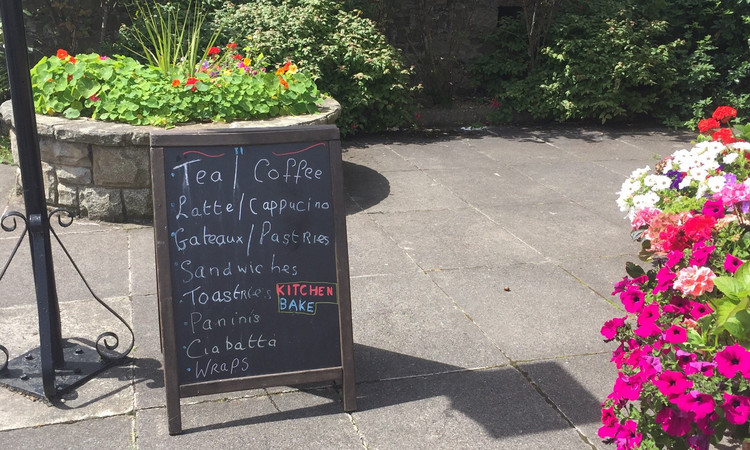 Tea / Coffee
Latte / Cappucino
Gateaux / Pastries
Sandwiches
Toastries
KITCHEN
BAKE
Paninis
Ciabatta
Wraps